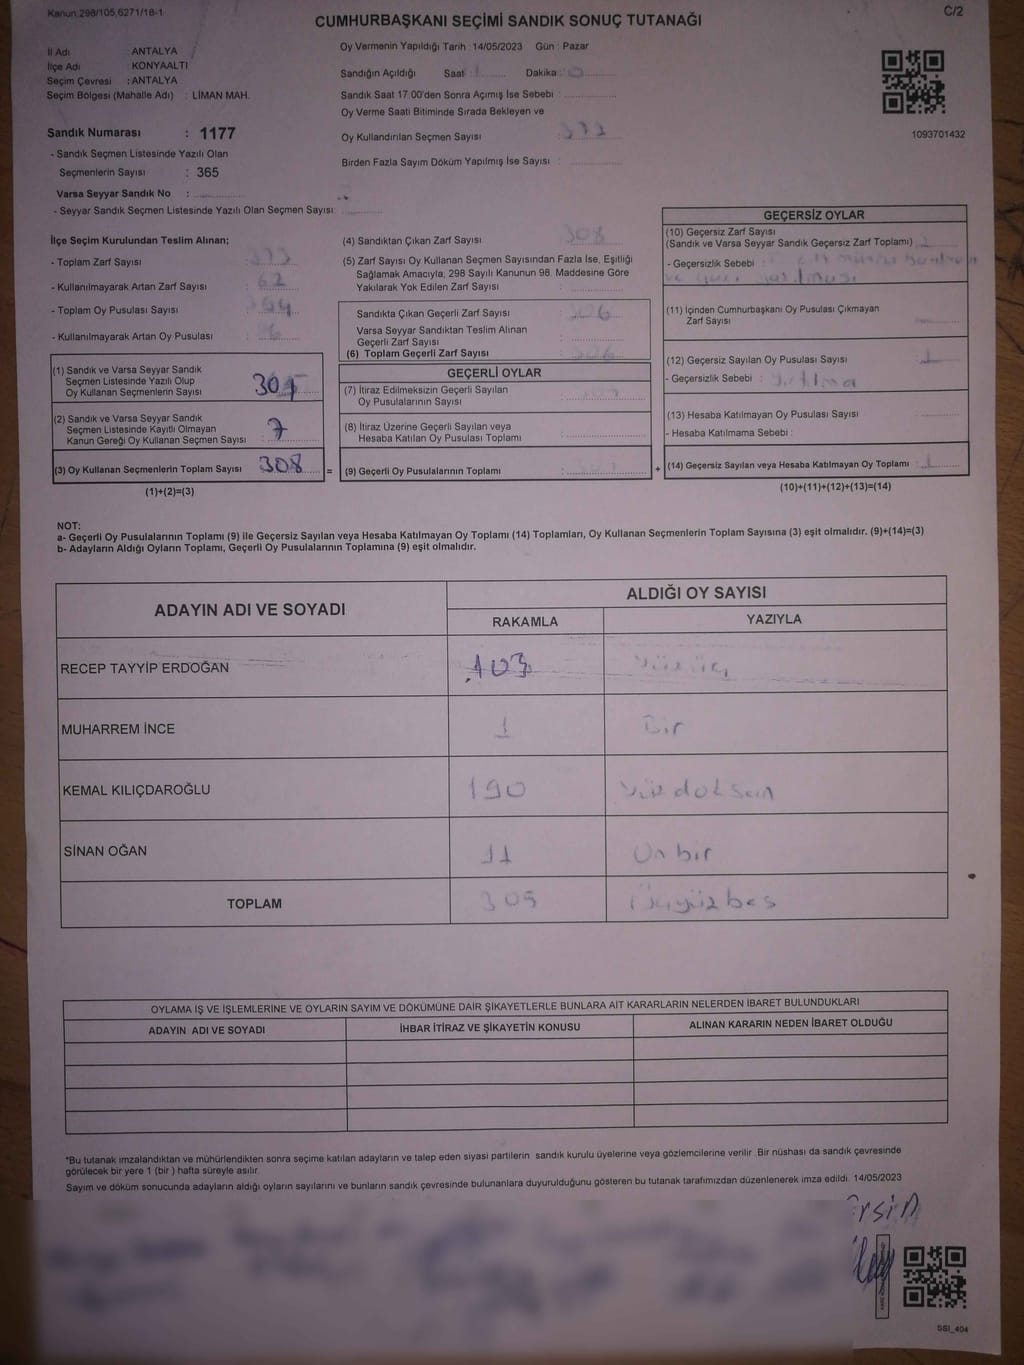 Kanun:298/105,6271/18-1
C/2
CUMHURBAŞKANI SEÇİMİ SANDIK SONUÇ TUTANAĞI
İl Adı : ANTALYA
İlçe Adı : KONYAALTI
Seçim Çevresi : ANTALYA
Seçim Bölgesi (Mahalle Adı) : LİMAN MAH.
Sandık Numarası : 1177
- Sandık Seçmen Listesinde Yazılı Olan
Seçmenlerin Sayısı : 365
Varsa Seyyar Sandık No :
- Seyyar Sandık Seçmen Listesinde Yazılı Olan Seçmen Sayısı:
Oy Vermenin Yapıldığı Tarih : 14/05/2023 Gün : Pazar
Sandığın Açıldığı Saat : Dakika :
Sandık Saat 17:00'den Sonra Açımış İse Sebebi :
Oy Verme Saati Bitiminde Sırada Bekleyen ve
Oy Kullandırılan Seçmen Sayısı :
Birden Fazla Sayım Döküm Yapılmış İse Sayısı :
1093701432
İlçe Seçim Kurulundan Teslim Alınan;
- Toplam Zarf Sayısı :
- Kullanılmayarak Artan Zarf Sayısı : 62
- Toplam Oy Pusulası Sayısı :
- Kullanılmayarak Artan Oy Pusulası :
(1) Sandık ve Varsa Seyyar Sandık
Seçmen Listesinde Yazılı Olup
Oy Kullanan Seçmenlerin Sayısı : 301
(2) Sandık ve Varsa Seyyar Sandık
Seçmen Listesinde Kayıtlı Olmayan
Kanun Gereği Oy Kullanan Seçmen Sayısı : 7
(3) Oy Kullanan Seçmenlerin Toplam Sayısı : 308
(1)+(2)=(3)
(4) Sandıktan Çıkan Zarf Sayısı : 308
(5) Zarf Sayısı Oy Kullanan Seçmen Sayısından Fazla İse, Eşitliği
Sağlamak Amacıyla, 298 Sayılı Kanunun 98. Maddesine Göre
Yakılarak Yok Edilen Zarf Sayısı :
Sandıkta Çıkan Geçerli Zarf Sayısı : 306
Varsa Seyyar Sandıktan Teslim Alınan
Geçerli Zarf Sayısı :
(6) Toplam Geçerli Zarf Sayısı : 306
GEÇERLİ OYLAR
(7) İtiraz Edilmeksizin Geçerli Sayılan
Oy Pusulalarının Sayısı :
(8) İtiraz Üzerine Geçerli Sayılan veya
Hesaba Katılan Oy Pusulası Toplamı :
= (9) Geçerli Oy Pusulalarının Toplamı :
GEÇERSİZ OYLAR
(10) Geçersiz Zarf Sayısı
(Sandık ve Varsa Seyyar Sandık Geçersiz Zarf Toplamı) : 2
- Geçersizlik Sebebi :
(11) İçinden Cumhurbaşkanı Oy Pusulası Çıkmayan
Zarf Sayısı :
(12) Geçersiz Sayılan Oy Pusulası Sayısı : 1
- Geçersizlik Sebebi : Yırtılma
(13) Hesaba Katılmayan Oy Pusulası Sayısı :
- Hesaba Katılmama Sebebi :
+ (14) Geçersiz Sayılan veya Hesaba Katılmayan Oy Toplamı :
(10)+(11)+(12)+(13)=(14)
NOT:
a- Geçerli Oy Pusulalarının Toplamı (9) ile Geçersiz Sayılan veya Hesaba Katılmayan Oy Toplamı (14) Toplamları, Oy Kullanan Seçmenlerin Toplam Sayısına (3) eşit olmalıdır. (9)+(14)=(3)
b- Adayların Aldığı Oyların Toplamı, Geçerli Oy Pusulalarının Toplamına (9) eşit olmalıdır.
ADAYIN ADI VE SOYADI
ALDIĞI OY SAYISI
RAKAMLA YAZIYLA
RECEP TAYYİP ERDOĞAN 103 Yüzüç
MUHARREM İNCE 1 Bir
KEMAL KILIÇDAROĞLU 190 Yüzdoksan
SİNAN OĞAN 11 On bir
TOPLAM 305 Üçyüzbeş
OYLAMA İŞ VE İŞLEMLERİNE VE OYLARIN SAYIM VE DÖKÜMÜNE DAİR ŞİKAYETLERLE BUNLARA AİT KARARLARIN NELERDEN İBARET BULUNDUKLARI
ADAYIN ADI VE SOYADI İHBAR İTİRAZ VE ŞİKAYETİN KONUSU ALINAN KARARIN NEDEN İBARET OLDUĞU
*Bu tutanak imzalandıktan ve mühürlendikten sonra seçime katılan adayların ve talep eden siyasi partilerin sandık kurulu üyelerine veya gözlemcilerine verilir. Bir nüshası da sandık çevresinde
görülecek bir yere 1 (bir) hafta süreyle asılır.
Sayım ve döküm sonucunda adayların aldığı oyların sayılarını ve bunların sandık çevresinde bulunanlara duyurulduğunu gösteren bu tutanak tarafımızdan düzenlenerek imza edildi. 14/05/2023
SSI_404